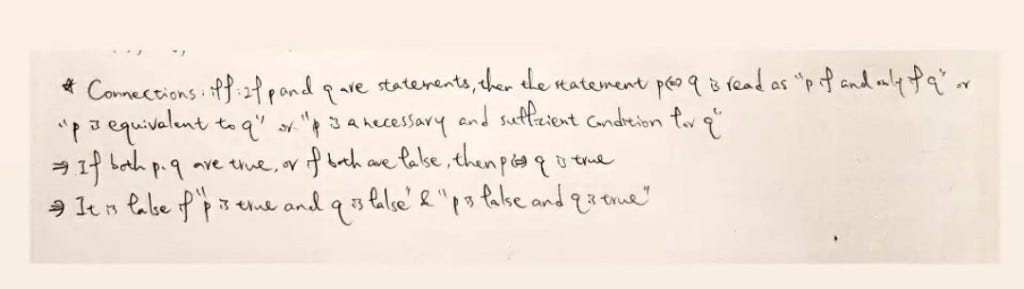 * Connections: iff: If p and q are statements, then the statement p⇔q is read as "p if and only if q" or
"p is equivalent to q" or "p is a necessary and sufficient condition for q"
⇒ If both p. q are true, or if both are false, then p⇔q is true
⇒ It is false if "p is true and q is false" & "p is false and q is true"